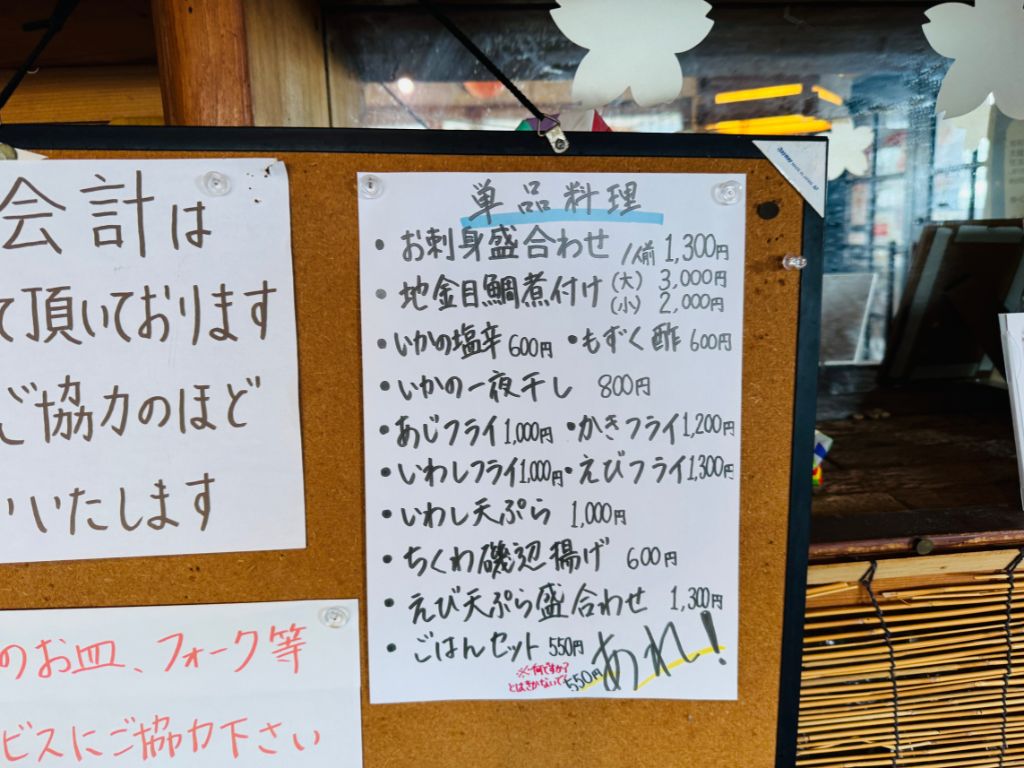 会計は
て頂いております
ご協力のほど
いいたします
のお皿、フォーク等
ビスにご協力下さい
単品料理
・お刺身盛合わせ /人前 1,300円
・地金目鯛煮付け (大) 3,000円
(小) 2,000円
・いかの塩辛 600円 ・もずく酢 600円
・いかの一夜干し 800円
・あじフライ 1,000円 ・かきフライ 1,200円
・いわしフライ 1,000円 ・えびフライ 1,300円
・いわし天ぷら 1,000円
・ちくわ磯辺揚げ 600円
・えび天ぷら盛合わせ 1,300円
・ごはんセット 550円
あれ! 550円
※何ですか?
とはきかないで